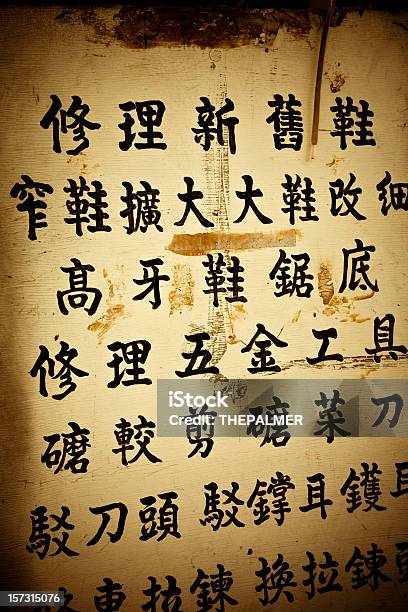 修理新舊鞋
窄鞋擴大大鞋改細
高牙鞋鋸底
修理五金工具
iStock
Credit: THEPALMER
磨較剪磨菜刀
駁刀頭駁鐣耳鑊耳
車拉鍊換拉鍊
157315076